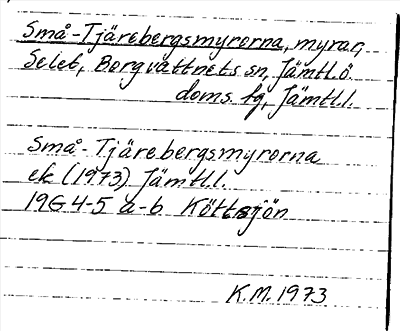 Små-Tjärebergsmyrorna, myrar,
Selet, Borgvattnets sn, Jämtl.ö.
doms. fg, Jämtl.l.
Små-Tjärebergsmyrorna
ek (1973) Jämtl.l.
19G 4-5 a-b Köttsjön
K.M. 1973